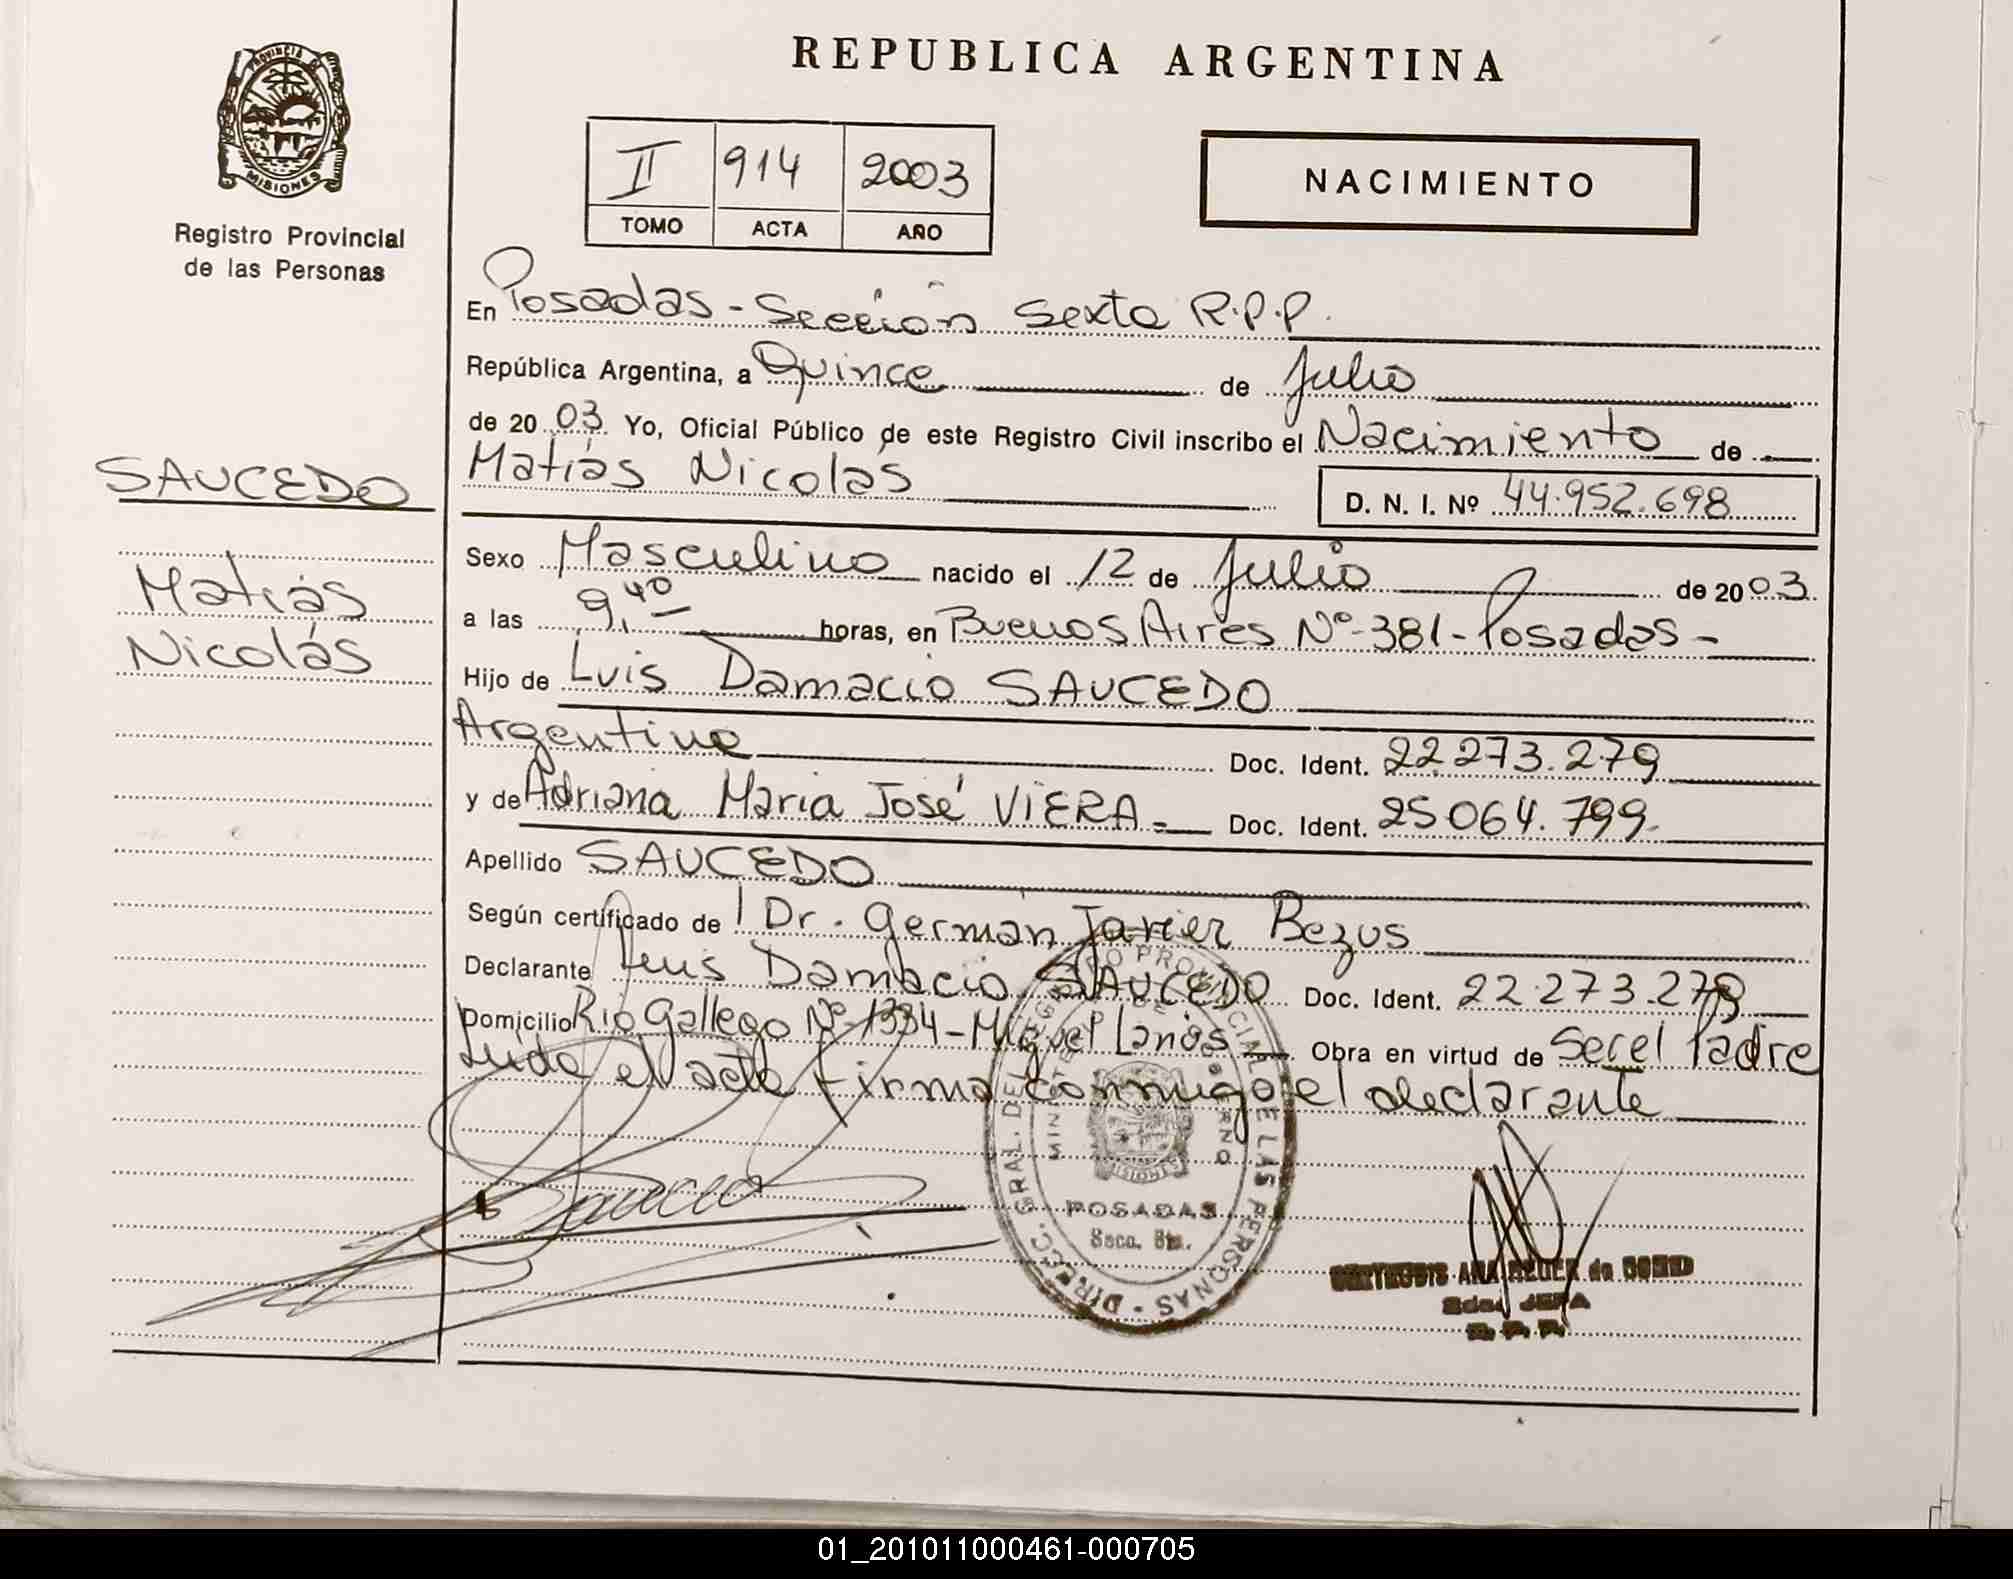 REPUBLICA ARGENTINA
PROVINCIA DE
MISIONES
Registro Provincial
de las Personas
II 914 2003
TOMO ACTA AÑO
NACIMIENTO
En Posadas - Sección Sexta R.P.P.
República Argentina, a Quince de Julio
de 2003 Yo, Oficial Público de este Registro Civil inscribo el Nacimiento de
SAUCEDO
Matías Nicolás
D. N. I. Nº 44.952.698
Matías
Nicolás
Sexo Masculino nacido el 12 de Julio de 2003
a las 9,40 horas, en Buenos Aires Nº-381-Posadas-
Hijo de Luis Damacio SAUCEDO
Argentino Doc. Ident. 22.273.279
y de Adriana Maria José VIERA Doc. Ident. 25064.799
Apellido SAUCEDO
Según certificado de Dr. German Javier Bezus
Declarante Luis Damacio SAUCEDO Doc. Ident. 22.273.279
Domicilio Rio Gallego Nº-1334-Miguel Lanús Obra en virtud de Serel Padre
Leida el acta firma conmigo el declarante
Saucedo
DIRECC. GRAL. DEL REGISTRO PROVINCIAL DE LAS PERSONAS
MINISTERIO DE GOBIERNO
MISIONES
POSADAS
Secc. 6ta.
ANA de
JEFA
R. P. P.
01_201011000461-000705